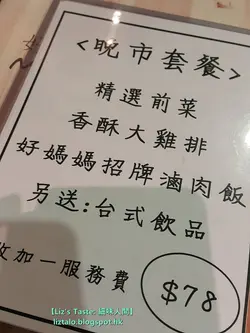 <晚市套餐>
精選前菜
香酥大雞排
好媽媽招牌滷肉飯
另送:台式飲品
收加一服務費
$78
【Liz's Taste. 細味人間】
liztalo.blogspot.hk